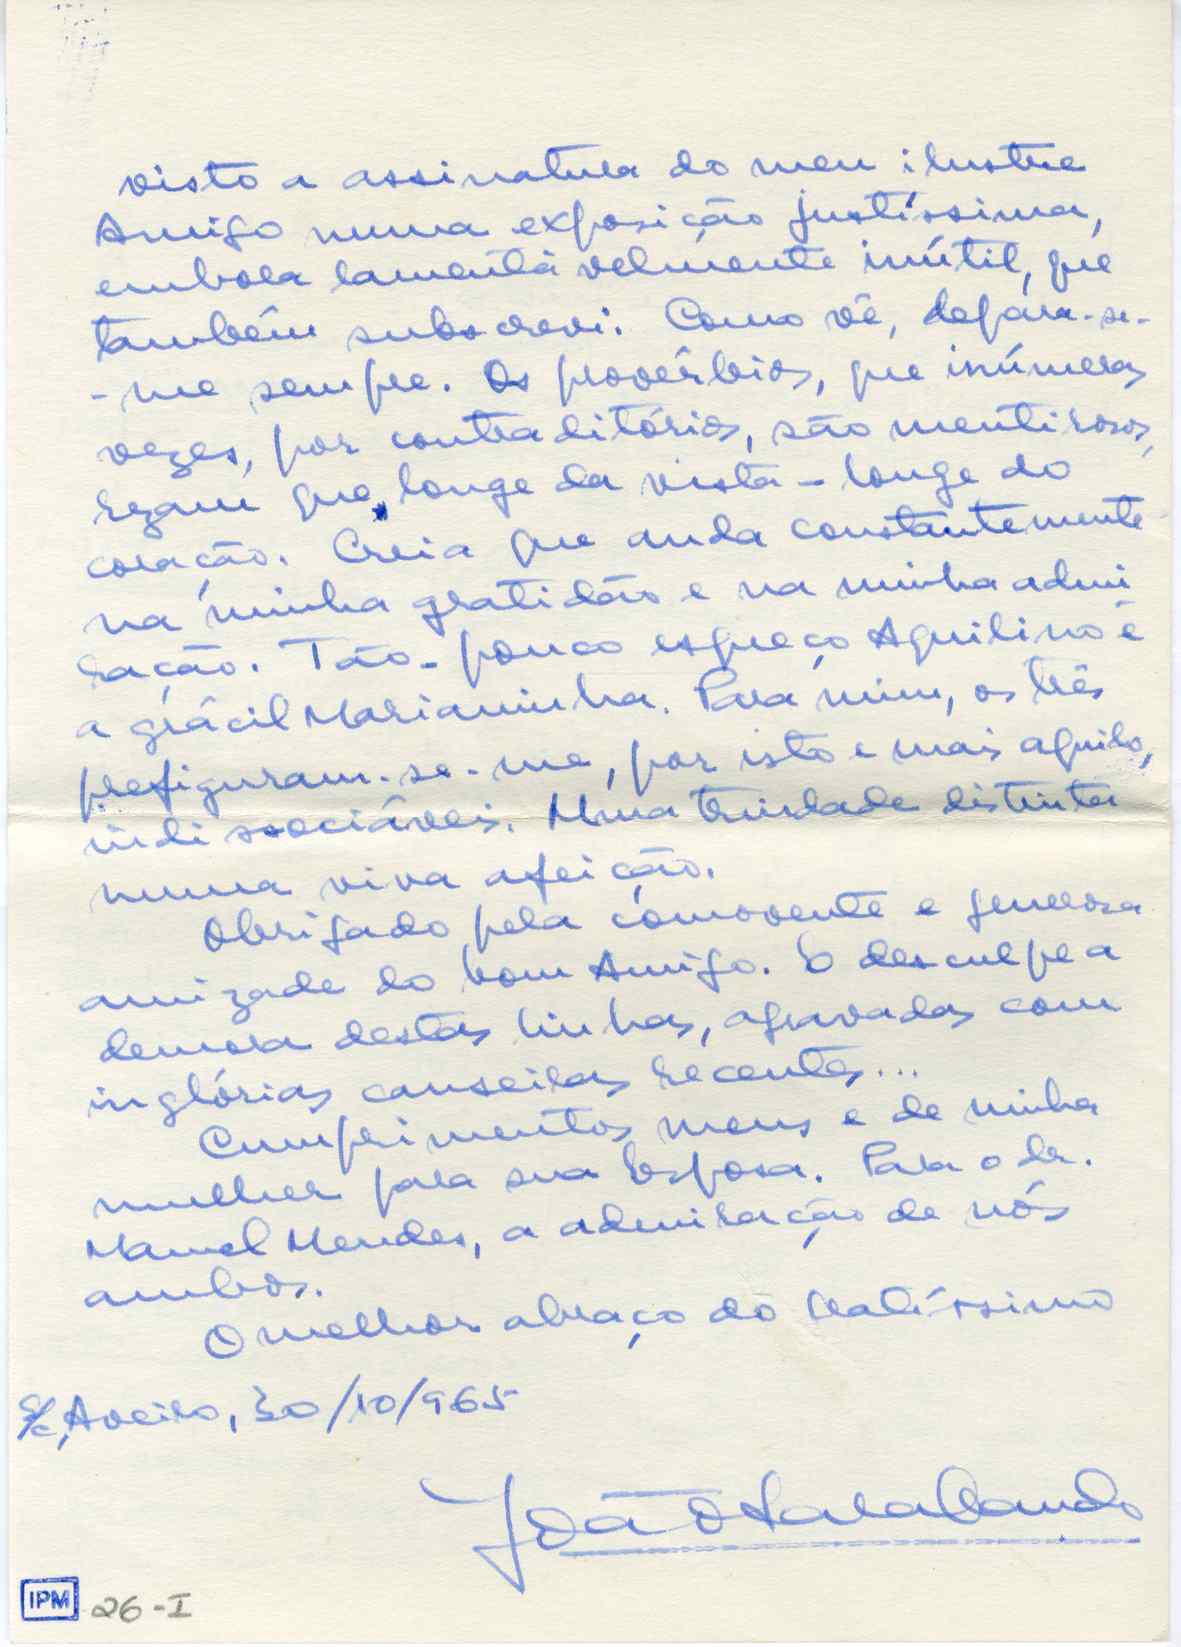 visto a assinatura do meu ilustre
Amigo numa exposição justíssima,
embora lamentàvelmente inútil, que
também subscrevi. Como vê, depára-se-
-me sempre. Os provérbios, que inúmeras
vezes, por contraditórios, são mentirosos,
rezam que longe da vista - longe do
coração. Creia que anda constantemente
na minha gratidão e na minha admi
ração. Tão-pouco esqueço Aquilino e
a grácil Marianinha. Para mim, os três
prefiguram-se-me, por isto e mais aquilo,
indissociáveis. Uma trindade distinta
numa viva afeição.
Obrigado pela comovente e generosa
amizade do bom Amigo. E desculpe a
demora destas linhas, agravadas com
inglórias canseiras recentes...
Cumprimentos meus e de minha
mulher para sua Esposa. Para o dr.
Manuel Mendes, a admiração de nós
ambos.
O melhor abraço do lealíssimo
S/c, Aveiro, 30/10/965
João Sarabando
IPM 26-I